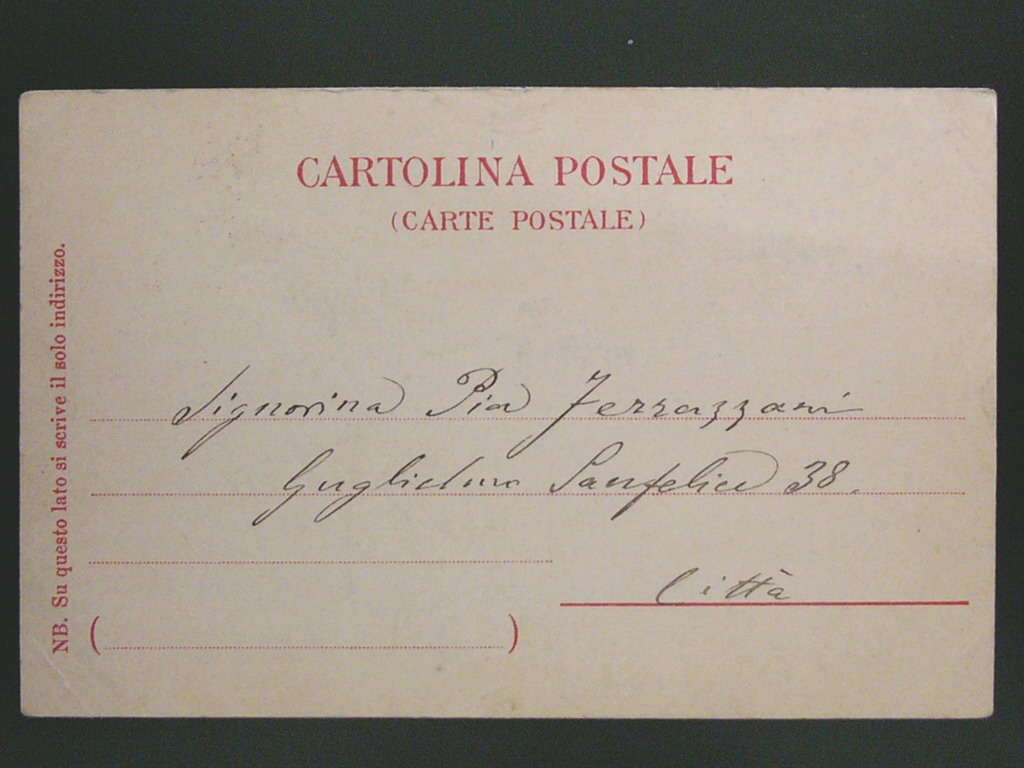 CARTOLINA POSTALE
(CARTE POSTALE)
NB. Su questo lato si scrive il solo indirizzo.
Signorina Pia Ferrazzani
Guglielmo Sanfelice 38.
Città